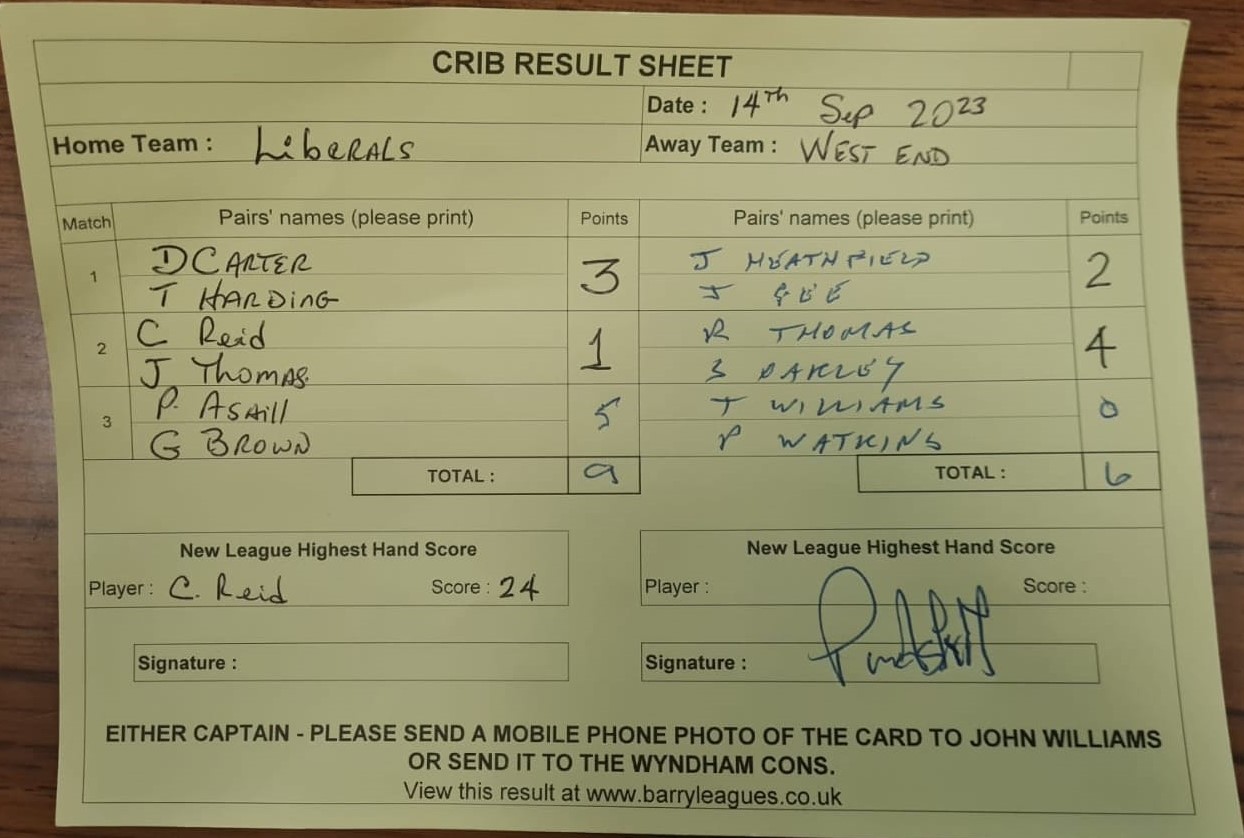 CRIB RESULT SHEET
Date : 14th Sep 2023
Home Team : LibERALS Away Team : WEST END
Match Pairs' names (please print) Points Pairs' names (please print) Points
1 D CARTER 3 J HEATHFIELD 2
T HARDING J GEE
2 C Reid 1 R THOMAS 4
J Thomas S OAKLEY
3 P. ASHill 5 T WILLIAMS 0
G BROWN P WATKINS
TOTAL : 9 TOTAL : 6
New League Highest Hand Score New League Highest Hand Score
Player : C. Reid Score : 24 Player : Score :
Signature : Signature :
EITHER CAPTAIN - PLEASE SEND A MOBILE PHONE PHOTO OF THE CARD TO JOHN WILLIAMS
OR SEND IT TO THE WYNDHAM CONS.
View this result at www.barryleagues.co.uk